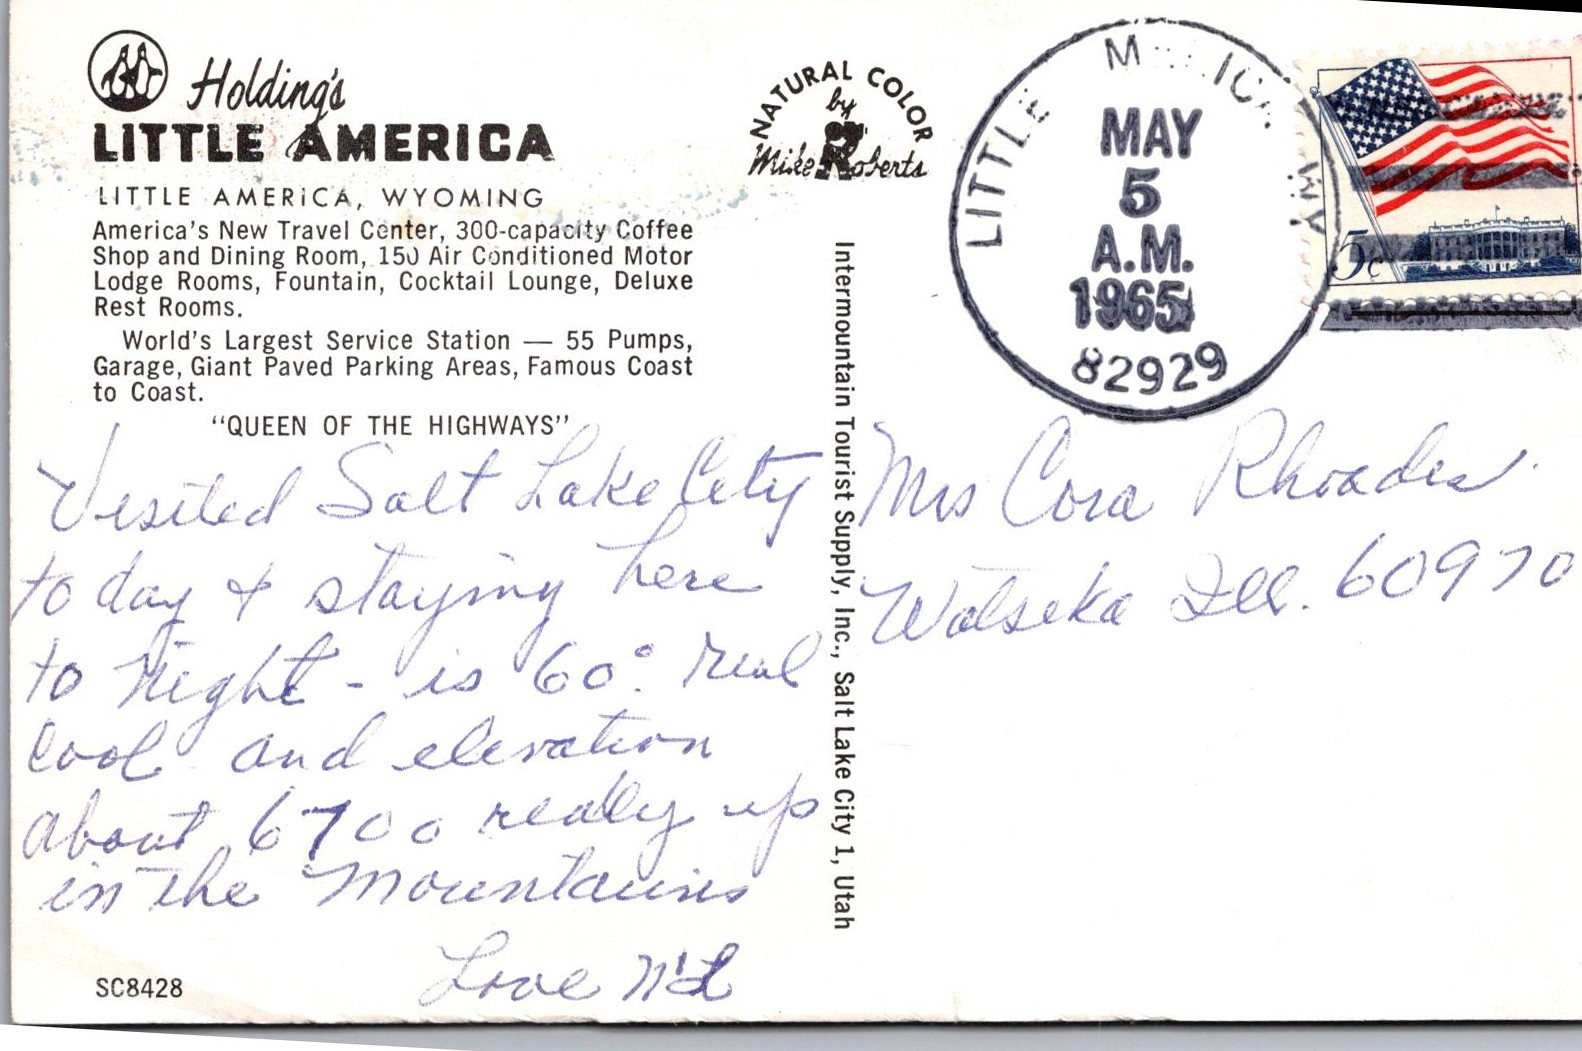 Holding's
LITTLE AMERICA
LITTLE AMERICA, WYOMING
America's New Travel Center, 300-capacity Coffee
Shop and Dining Room, 150 Air Conditioned Motor
Lodge Rooms, Fountain, Cocktail Lounge, Deluxe
Rest Rooms.
World's Largest Service Station — 55 Pumps,
Garage, Giant Paved Parking Areas, Famous Coast
to Coast.
"QUEEN OF THE HIGHWAYS"
Visited Salt Lake City
to day & staying here
to night - is 60° real
cool and elevation
about 6700 really up
in the Mountains
Love
SC8428
NATURAL COLOR
by
Mike Roberts
Intermountain Tourist Supply, Inc., Salt Lake City 1, Utah
LITTLE M ICA WY
MAY
5
A.M.
1965
82929
5c
Mrs Cora Rhoades
Watseka Ill. 60970